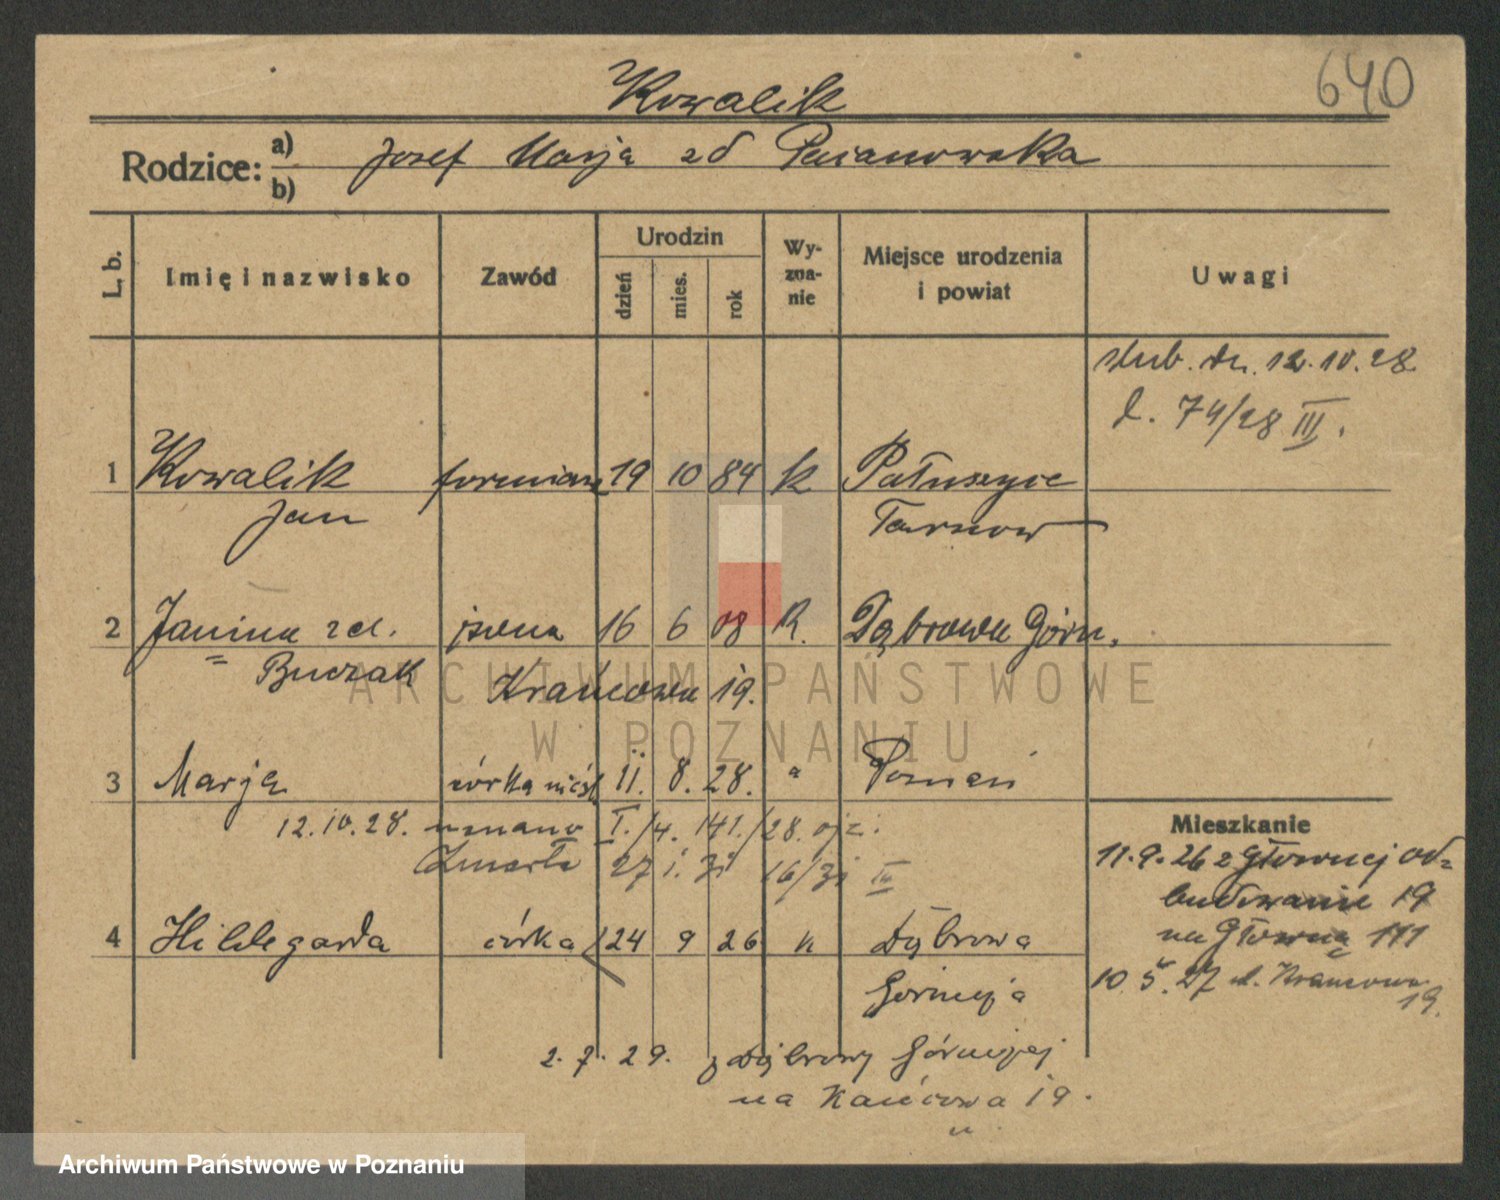 640
Kowalik
Rodzice: a) Josef Marja zd
b)
L. b. Imię i nazwisko Zawód Urodzin dzień mies. rok Wy-zna-nie Miejsce urodzenia i powiat Uwagi
ślub. dn. 12.10.28.
l. 74/28 III.
1 Kowalik 19 10 84 k Pałuszyce
Jan Tarnow
2 Janina zd. żona 16 6 08 R. Dąbrowa Górn.
Buczak Krańcowa 19.
3 Marja córka 11. 8. 28. " Poznań
12.10.28. uznano I./4. 141./28.
Zmarła 27 1. 31 16/31 III
Mieszkanie
11.9.26 z Głównej od-
budowanie 19
na Główną 111
4 Hildegarda córka 24 9 26 k Dąbrowa
10.5.27 Krańcowa
19.
Górnicja
2.7.29. z Dąbrowy Górniczej
na Kańcowa 19.
ARCHIWUM PAŃSTWOWE
W POZNANIU
Archiwum Państwowe w Poznaniu